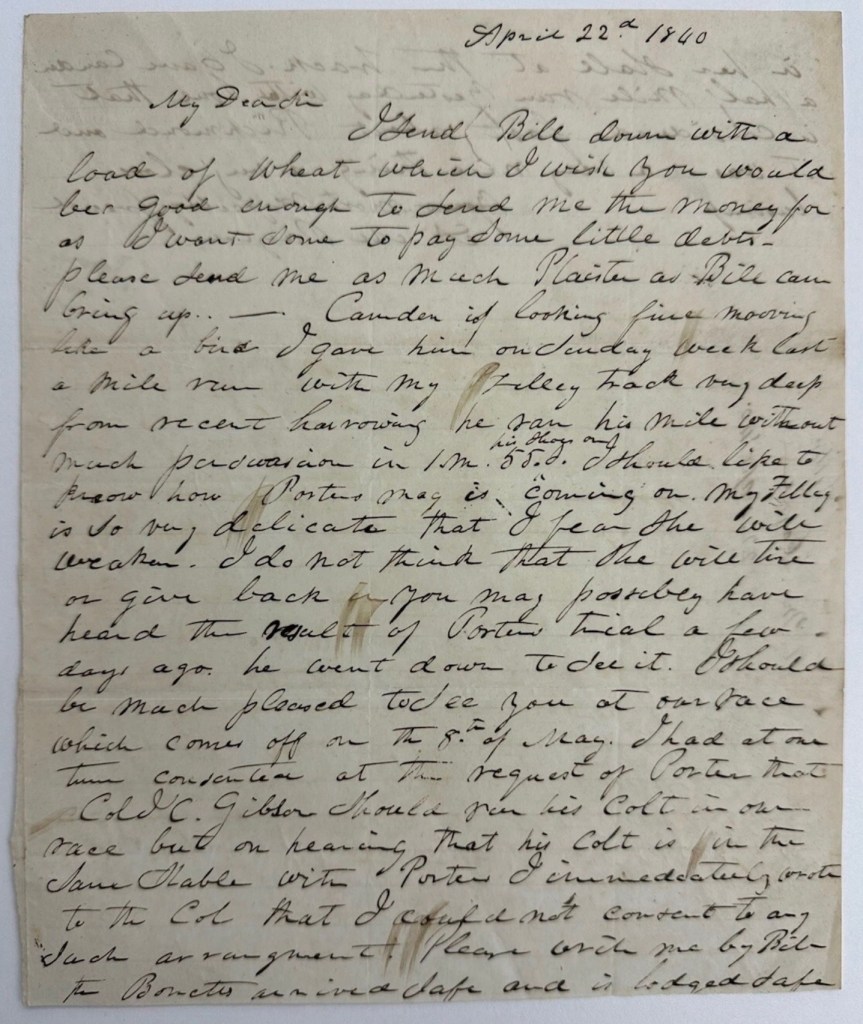 April 22.d 1840
My Dear Sir
I Send Bill down with a
load of Wheat which I wish you would
be good enough to Send me the money for
as I want Some to pay Some little debts-
please Send me as much Plaister as Bill can
bring up.. — Camden is looking fine mooving
like a bird I gave him on Sunday week last
a mile run with my Filley track very deep
from recent harrowing he ran his mile without
much perswasion in 1.m. 55.s. his Shoes on I Should like to
know how Porters mag is coming on. My Filley
is So very delicate that I fear She will
weaken. I do not think that She will tire
or give back You may possibley have
heard the result of Porters trial a few
days ago. he went down to See it. I Should
be much pleased to See you at our race
which comes off on th 8.th of May. I had at one
time consented at the request of Porter that
Col J C. Gibson Should run his Colt in our
race but on hearing that his Colt is in the
Same Stable with Porters I immedeately wrote
to the Col that I could not consent to any
Such arrangment. Please write me by Bill
the arrived Safe and is lodged Safe